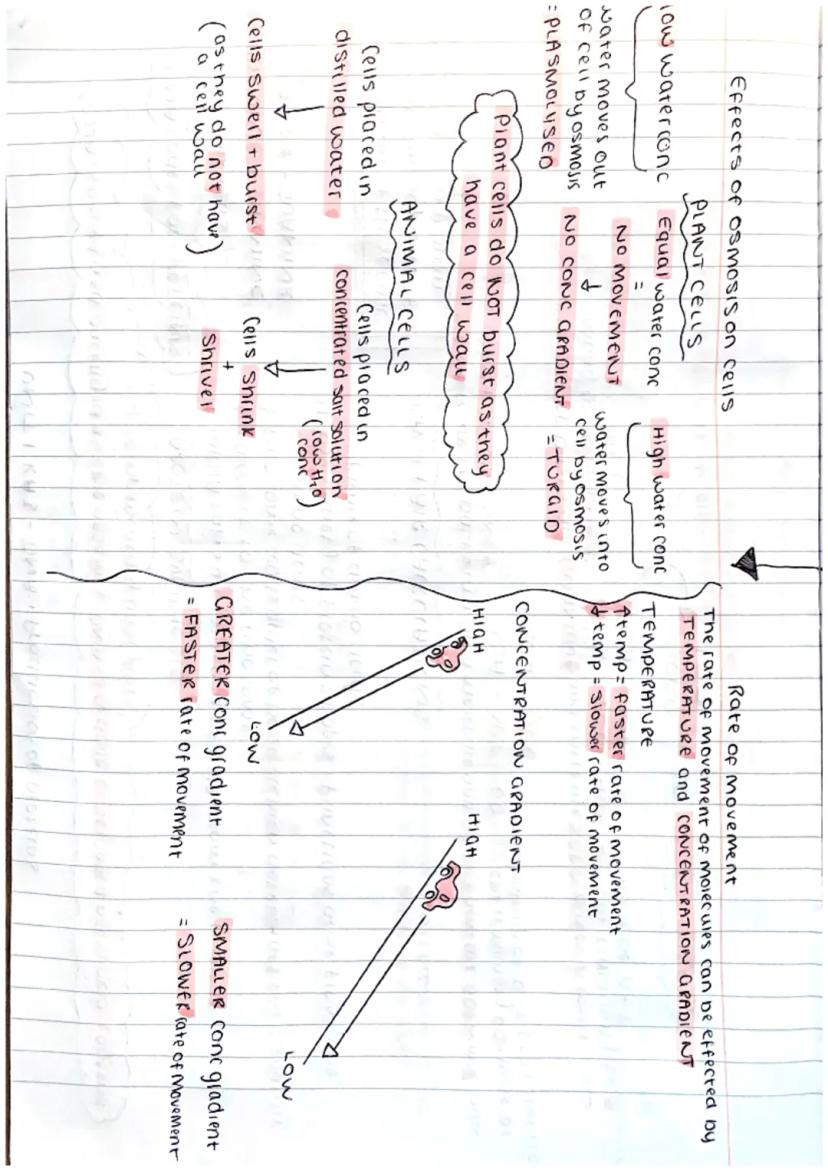 Effects of osmosis on cells
PLANT CELLS
low water conc
water moves out
of cell by osmosis
= PLASMOLYSED
Equal water conc
=
NO MOVEMENT
NO CONC GRADIENT
High water conc
water moves into
cell by osmosis
= TURGID
Plant cells do NOT burst as they
have a cell wall
ANIMAL CELLS
Cells placed in
distilled water
Cells swell + burst
(as they do not have)
a cell wall
Cells placed in
concentrated salt solution
(low H2O)
conc
Cells shrink
+
Shrivel
Rate of movement
The rate of movement of molecules can be effected by
TEMPERATURE and CONCENTRATION GRADIENT
TEMPERATURE
↑ temp = faster rate of movement
↓ temp = slower rate of movement
CONCENTRATION GRADIENT
HIGH
LOW
GREATER conc gradient
= FASTER rate of movement
HIGH
LOW
SMALLER conc gradient
= SLOWER rate of movement